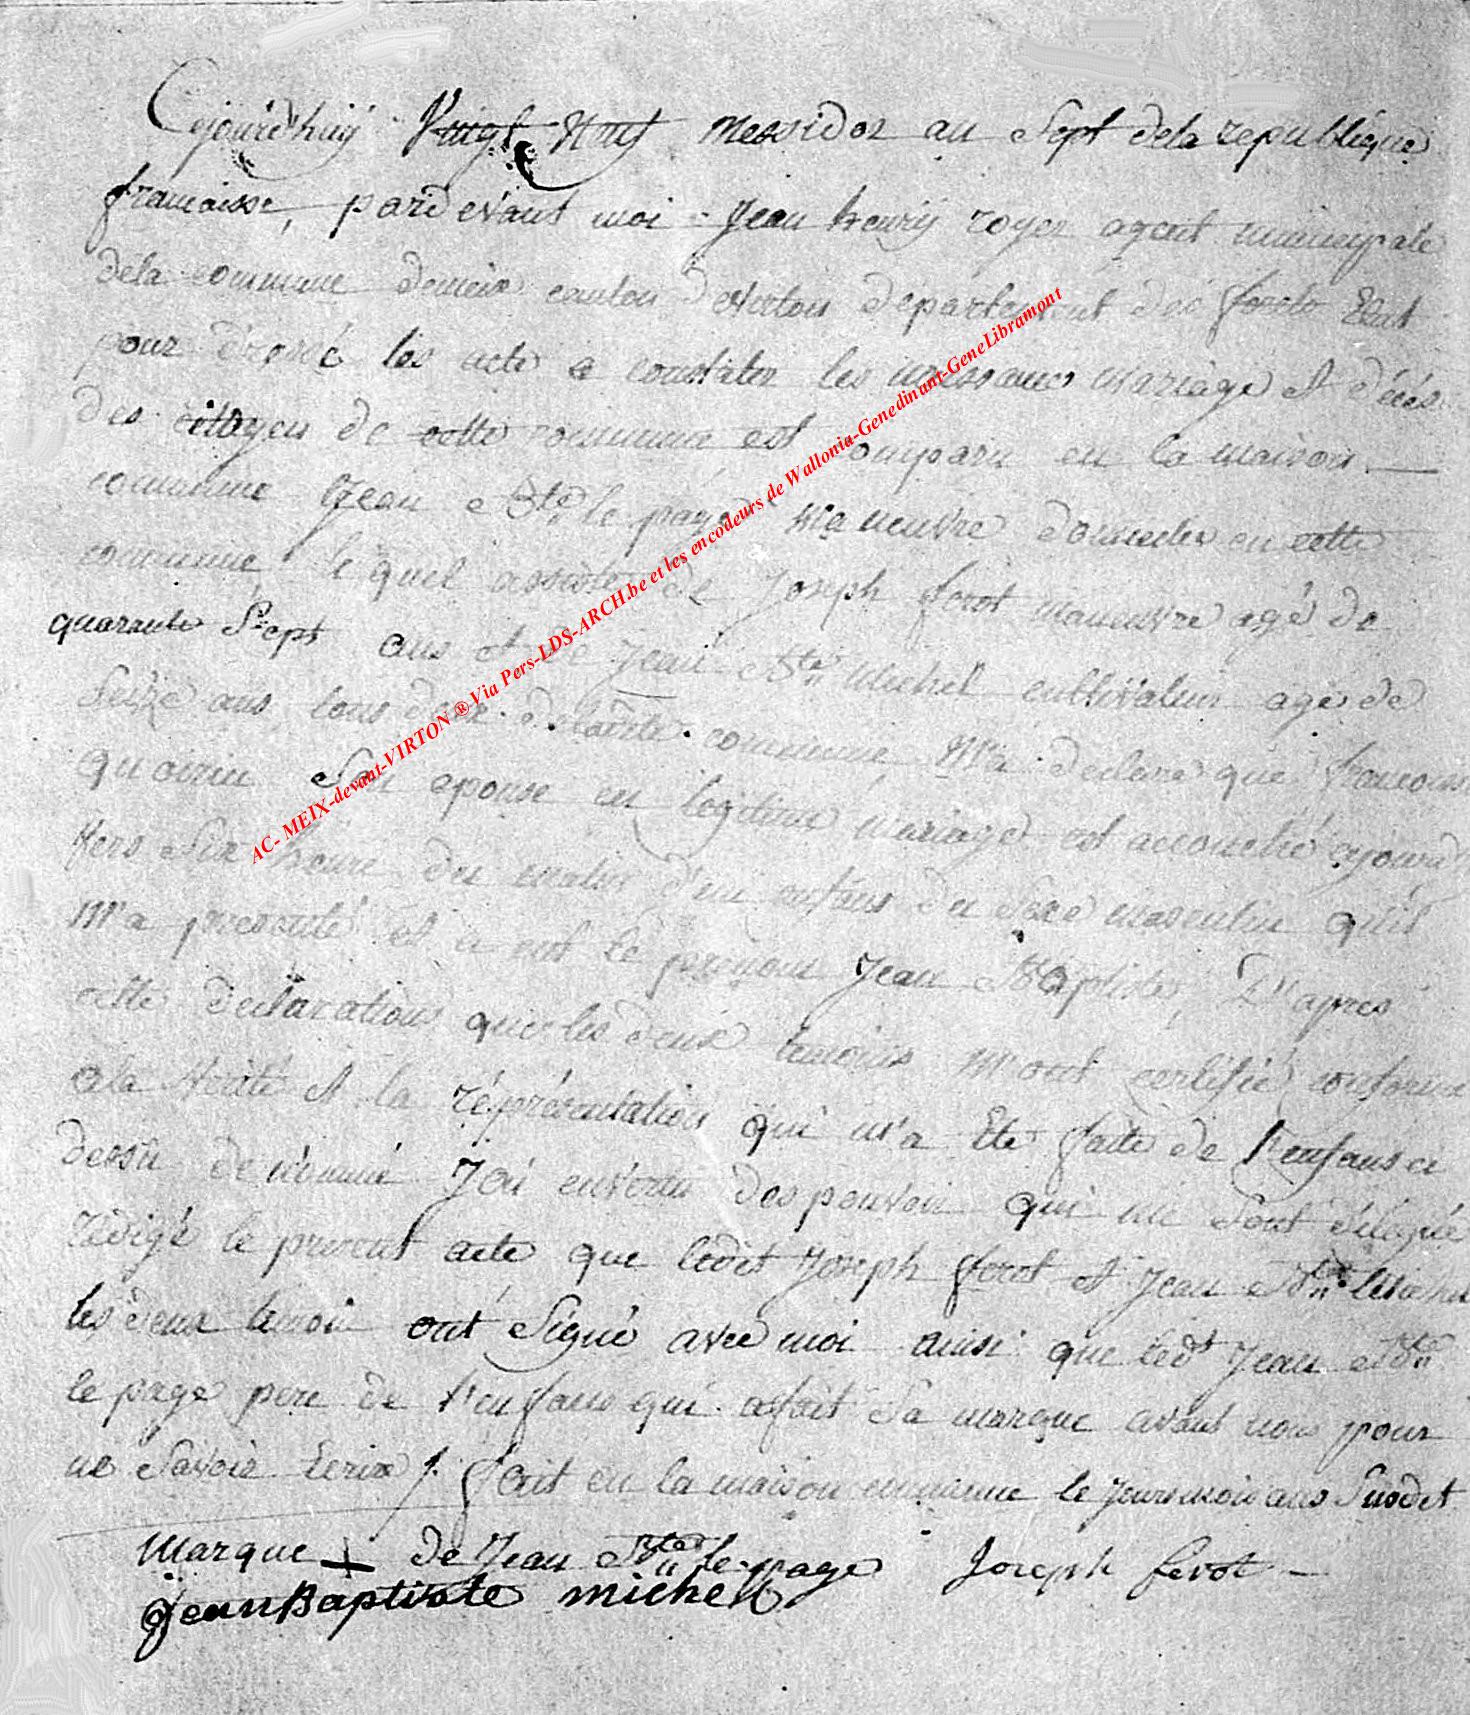 Cejourd'huÿ Vingt Neuf Messidor an Sept dela republique
francaisse, pardevant moi Jean henrÿ royer agent municypale
dela commune demeix canton devirton département des forets Elut
pour les acte a constater les naissances mariage et décés
des citoyen de cette commune est comparu en la maison
commune Jean Bte le page maneuvre domicilié en cette
commune, le quel assisté de Joseph ferot maneuvre agé de
quarante Sept ans et de Jean Bte michel cultivateur agé de
Seize ans tous deux commune M'a declaré que francoise
quoirin Son epouse en legitime mariage est accouché cejourd
Vers Six heure du matin d'un enfans du Sexe masculin qu'il
M'a presenté et a le prenoms Jean Baptiste, D'apres
cette declarations que les deux temoins M'ont certifié conforme
ala Verité et la réprésentation qui m'a Eté faite de l'enfans ci
dessu denommé J'ai envertu des pouvoir qui me Sont délégué
rédigé le present acte que ledit Joseph ferot et Jean Bte Michel
les deux temoin ont Signé avec moi ainsi que ledt Jean Bte
le page pere de l'enfans qui afait Sa marque avant nous pour
ne Savoir Ecrire /. fait en la maison commune le Jours mois ans Susdit
Marque + de Jean Bte le page Joseph ferot
Jean Baptiste michel
AC- MEIX-devant-VIRTON ® Via Pers-LDS-ARCH.be et les encodeurs de Wallonia-Genedinant-GeneLibramont